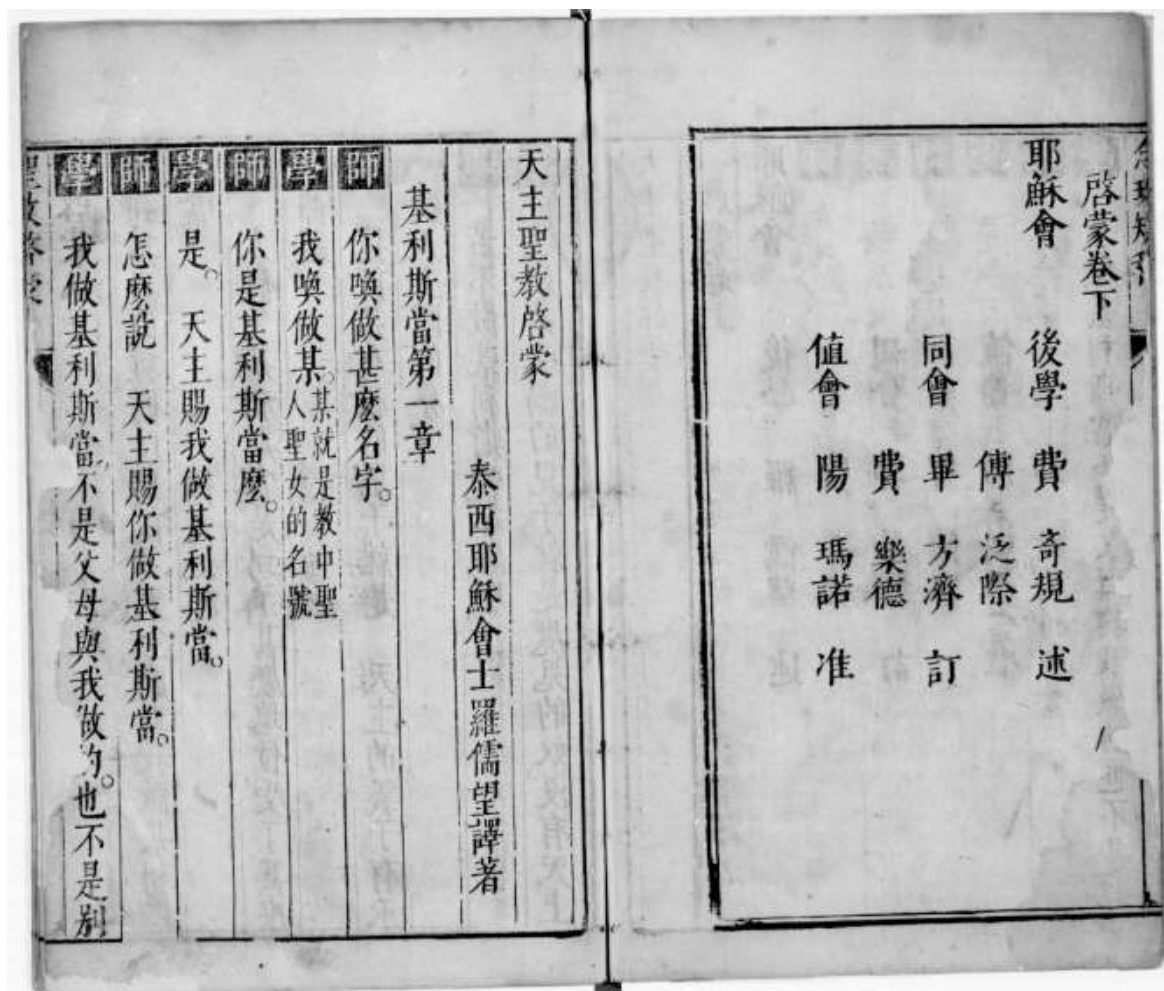 念珠規程
啓蒙卷下
耶穌會 後學 費 奇規 述
傅 泛際
同會 畢 方濟 訂
費 樂德
値會 陽 瑪諾 准
天主聖教啓蒙
泰西耶穌會士羅儒望譯著
基利斯當第一章
師 你喚做甚麽名字。
學 我喚做某。某就是教中聖人聖女的名號
師 你是基利斯當麽。
學 是。天主賜我做基利斯當。
師 怎麽說 天主賜你做基利斯當。
學 我做基利斯當、不是父母與我做的。也不是別
聖教啓蒙